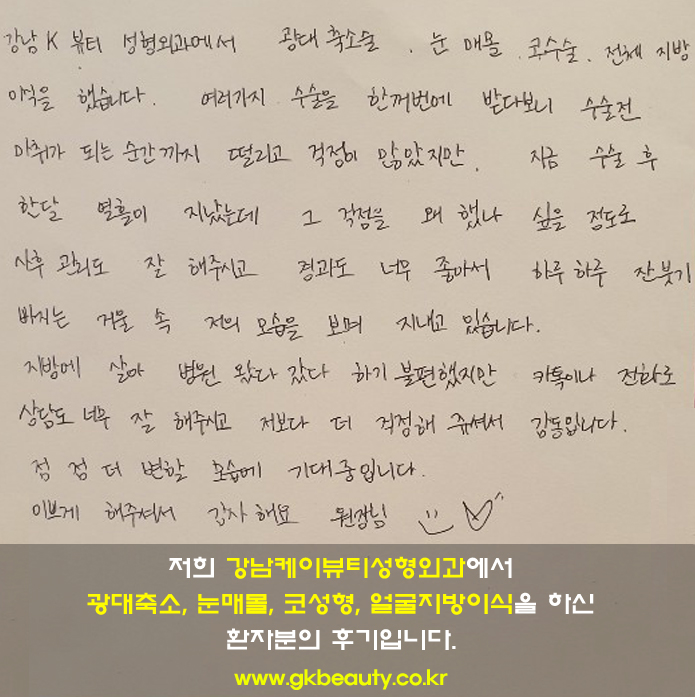 강남 K 뷰티 성형외과에서 광대축소술. 눈 매몰. 코수술. 전체 지방
이식을 했습니다. 여러가지 수술을 한꺼번에 받다보니 수술전
마취가 되는 순간까지 떨리고 걱정이 많았지만. 지금 수술 후
한달 열흘이 지났는데 그 걱정을 왜 했나 싶을 정도로
사후 관리도 잘 해주시고 경과도 너무 좋아서 하루 하루 잔붓기
빠지는 거울 속 저의 모습을 보며 지내고 있습니다.
지방에 살아 병원 왔다 갔다 하기 불편했지만 카톡이나 전화로
상담도 너무 잘 해주시고 저보다 더 걱정해 쥬셔서 감동입니다.
점 점 더 변할 모습에 기대중입니다.
이쁘게 해주셔서 감사해요 원장님
저희 강남케이뷰티성형외과에서
광대축소, 눈매몰, 코성형, 얼굴지방이식을 하신
환자분의 후기입니다.
www.gkbeauty.co.kr